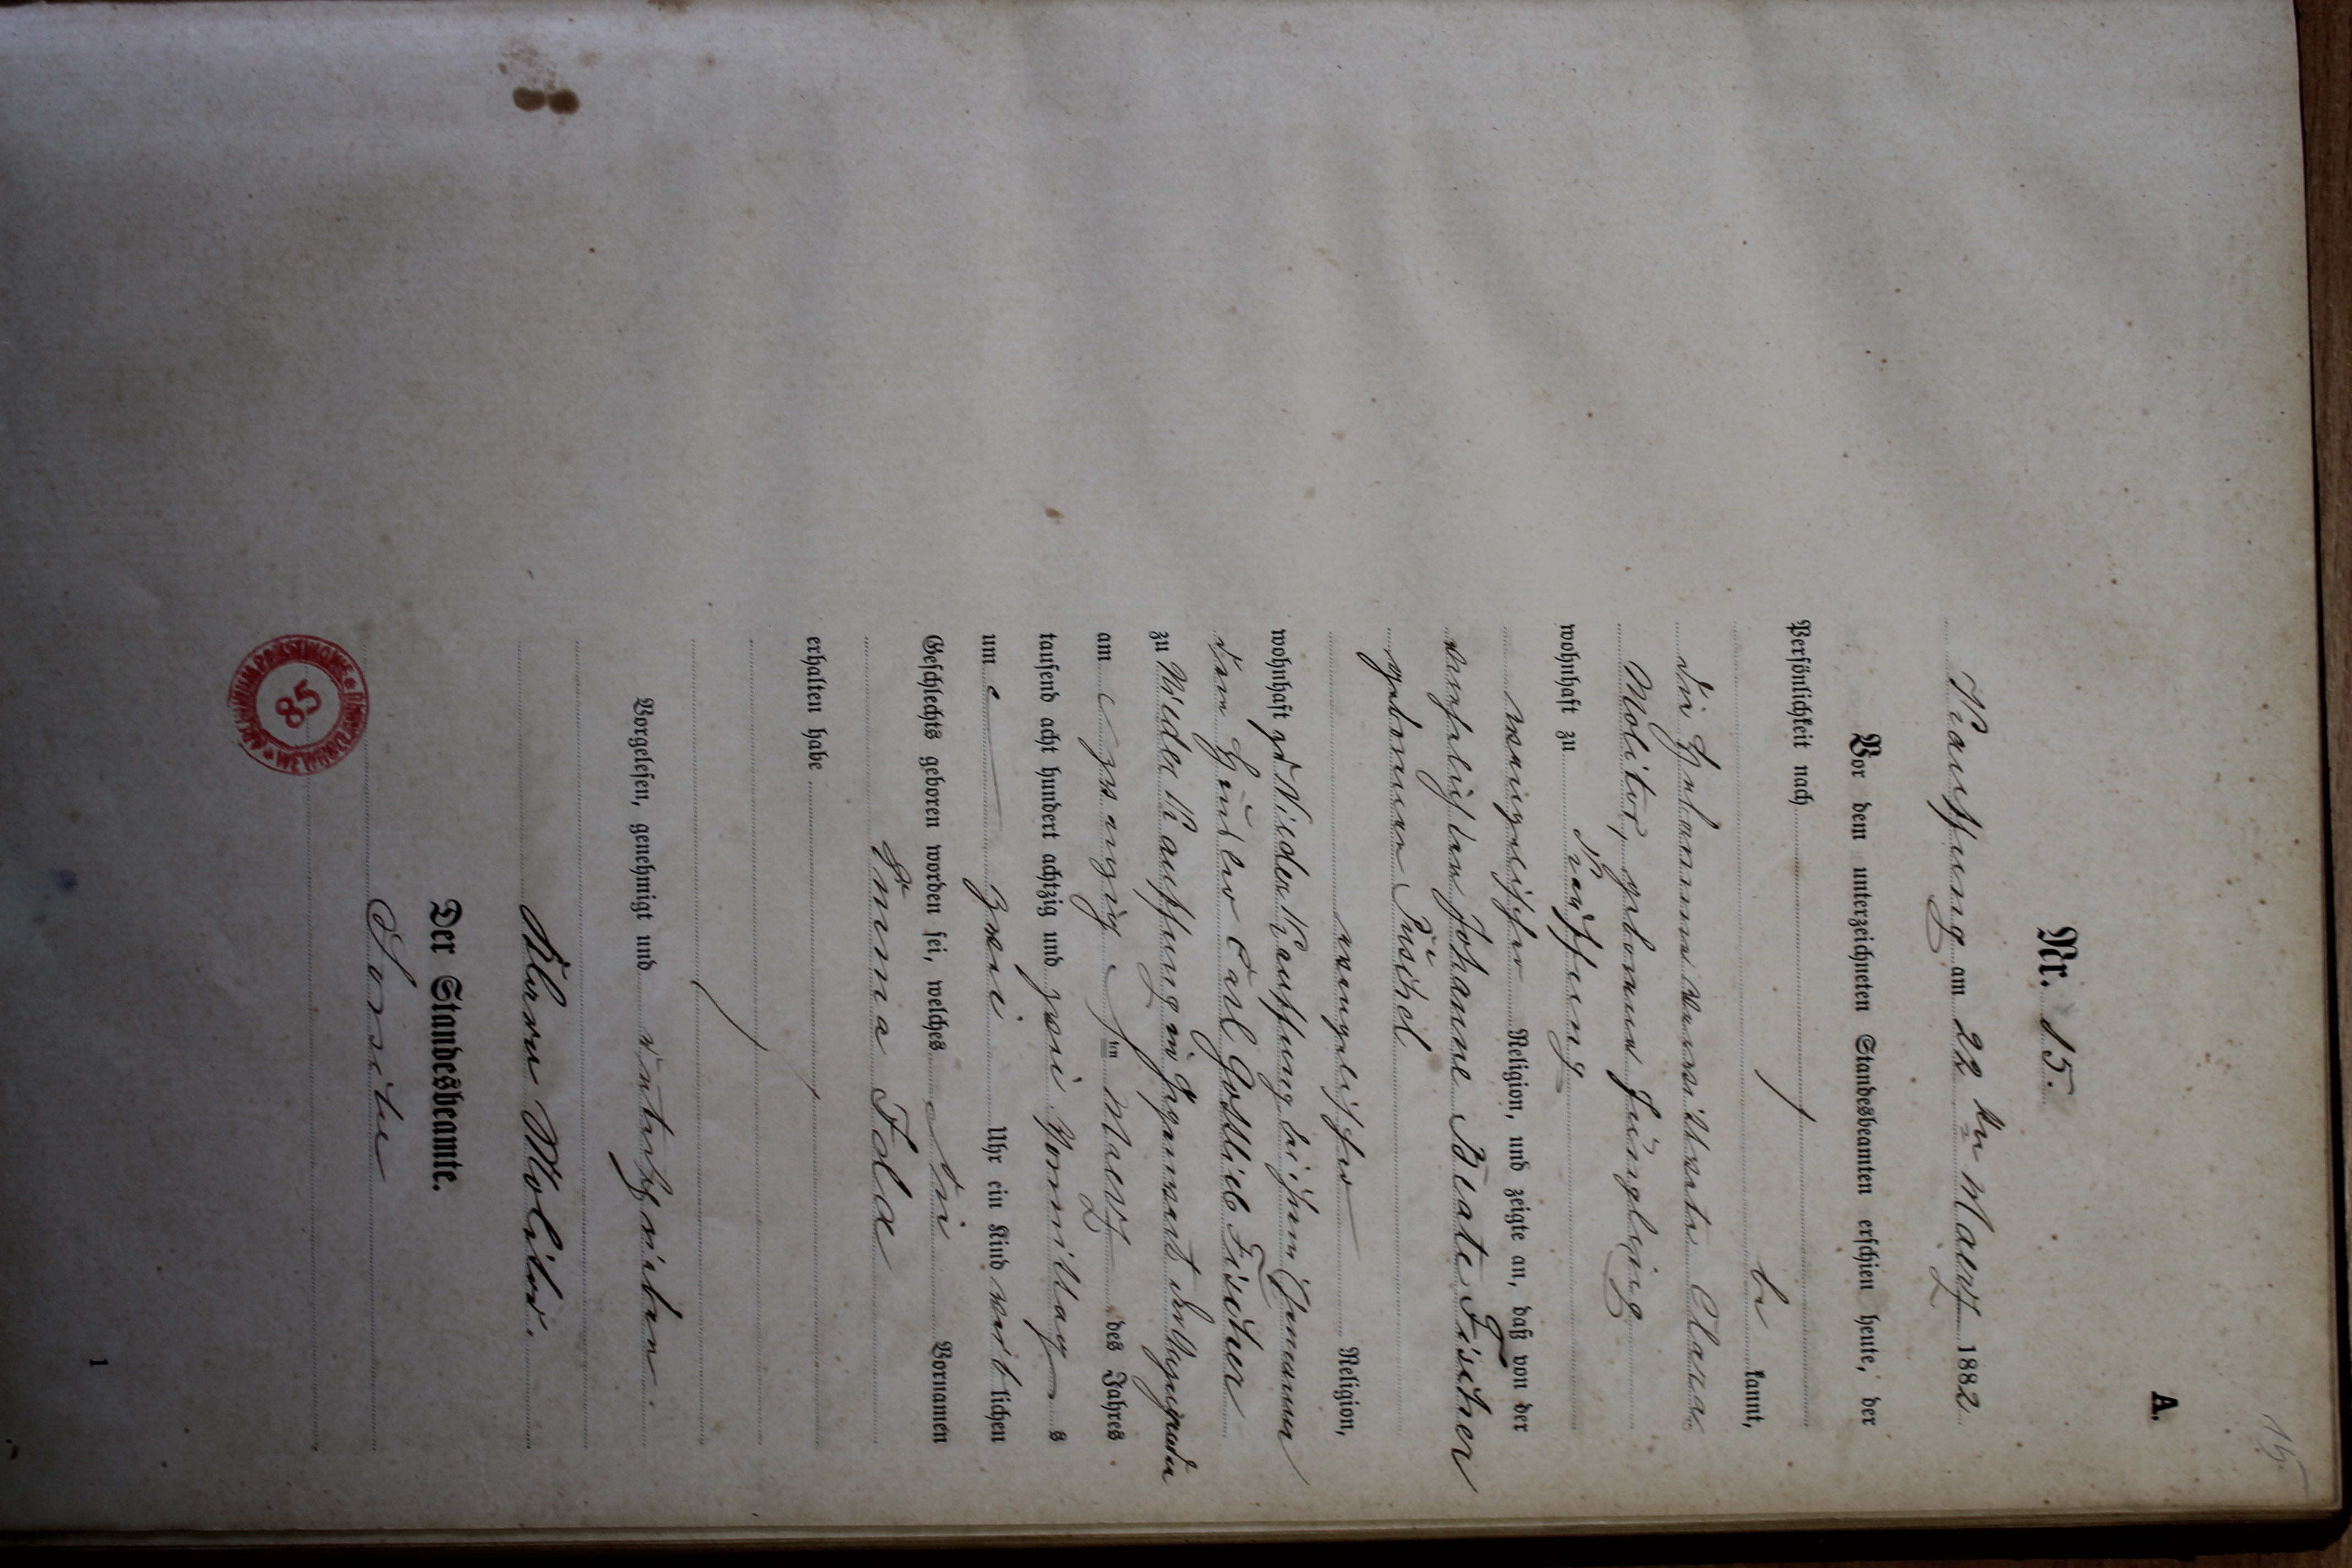 15
A.
Nr. 15.
Kauffung am 22ten Maerz 1882
Vor dem unterzeichneten Standesbeamten erschien heute, der
Persönlichkeit nach
be kannt,
die Hebamme verwittwete Clara
Molitor, geborene Jüngling
wohnhaft zu Kauffung
evangelischer Religion, und zeigte an, daß von der
verehelichten Johanne Beate Fischer
geborene Püschel
evangelischer Religion,
wohnhaft zu Nieder Kauffung bei ihrem Ehemann
dem Häusler Carl Gottlieb Fischer
zu Nieder Kauffung in Gegenwart
am zwanzigsten Maerz des Jahres
tausend acht hundert achtzig und zwei Vormittags
um zwei Uhr ein Kind weiblichen
Geschlechts geboren worden sei, welches die Vornamen
Emma Ida
erhalten habe
Vorgelesen, genehmigt und unterschrieben.
Klara Molitor.
Der Standesbeamte.
ARCHIWUM PAŃSTWOWE WE WROCŁAWIU
85
1